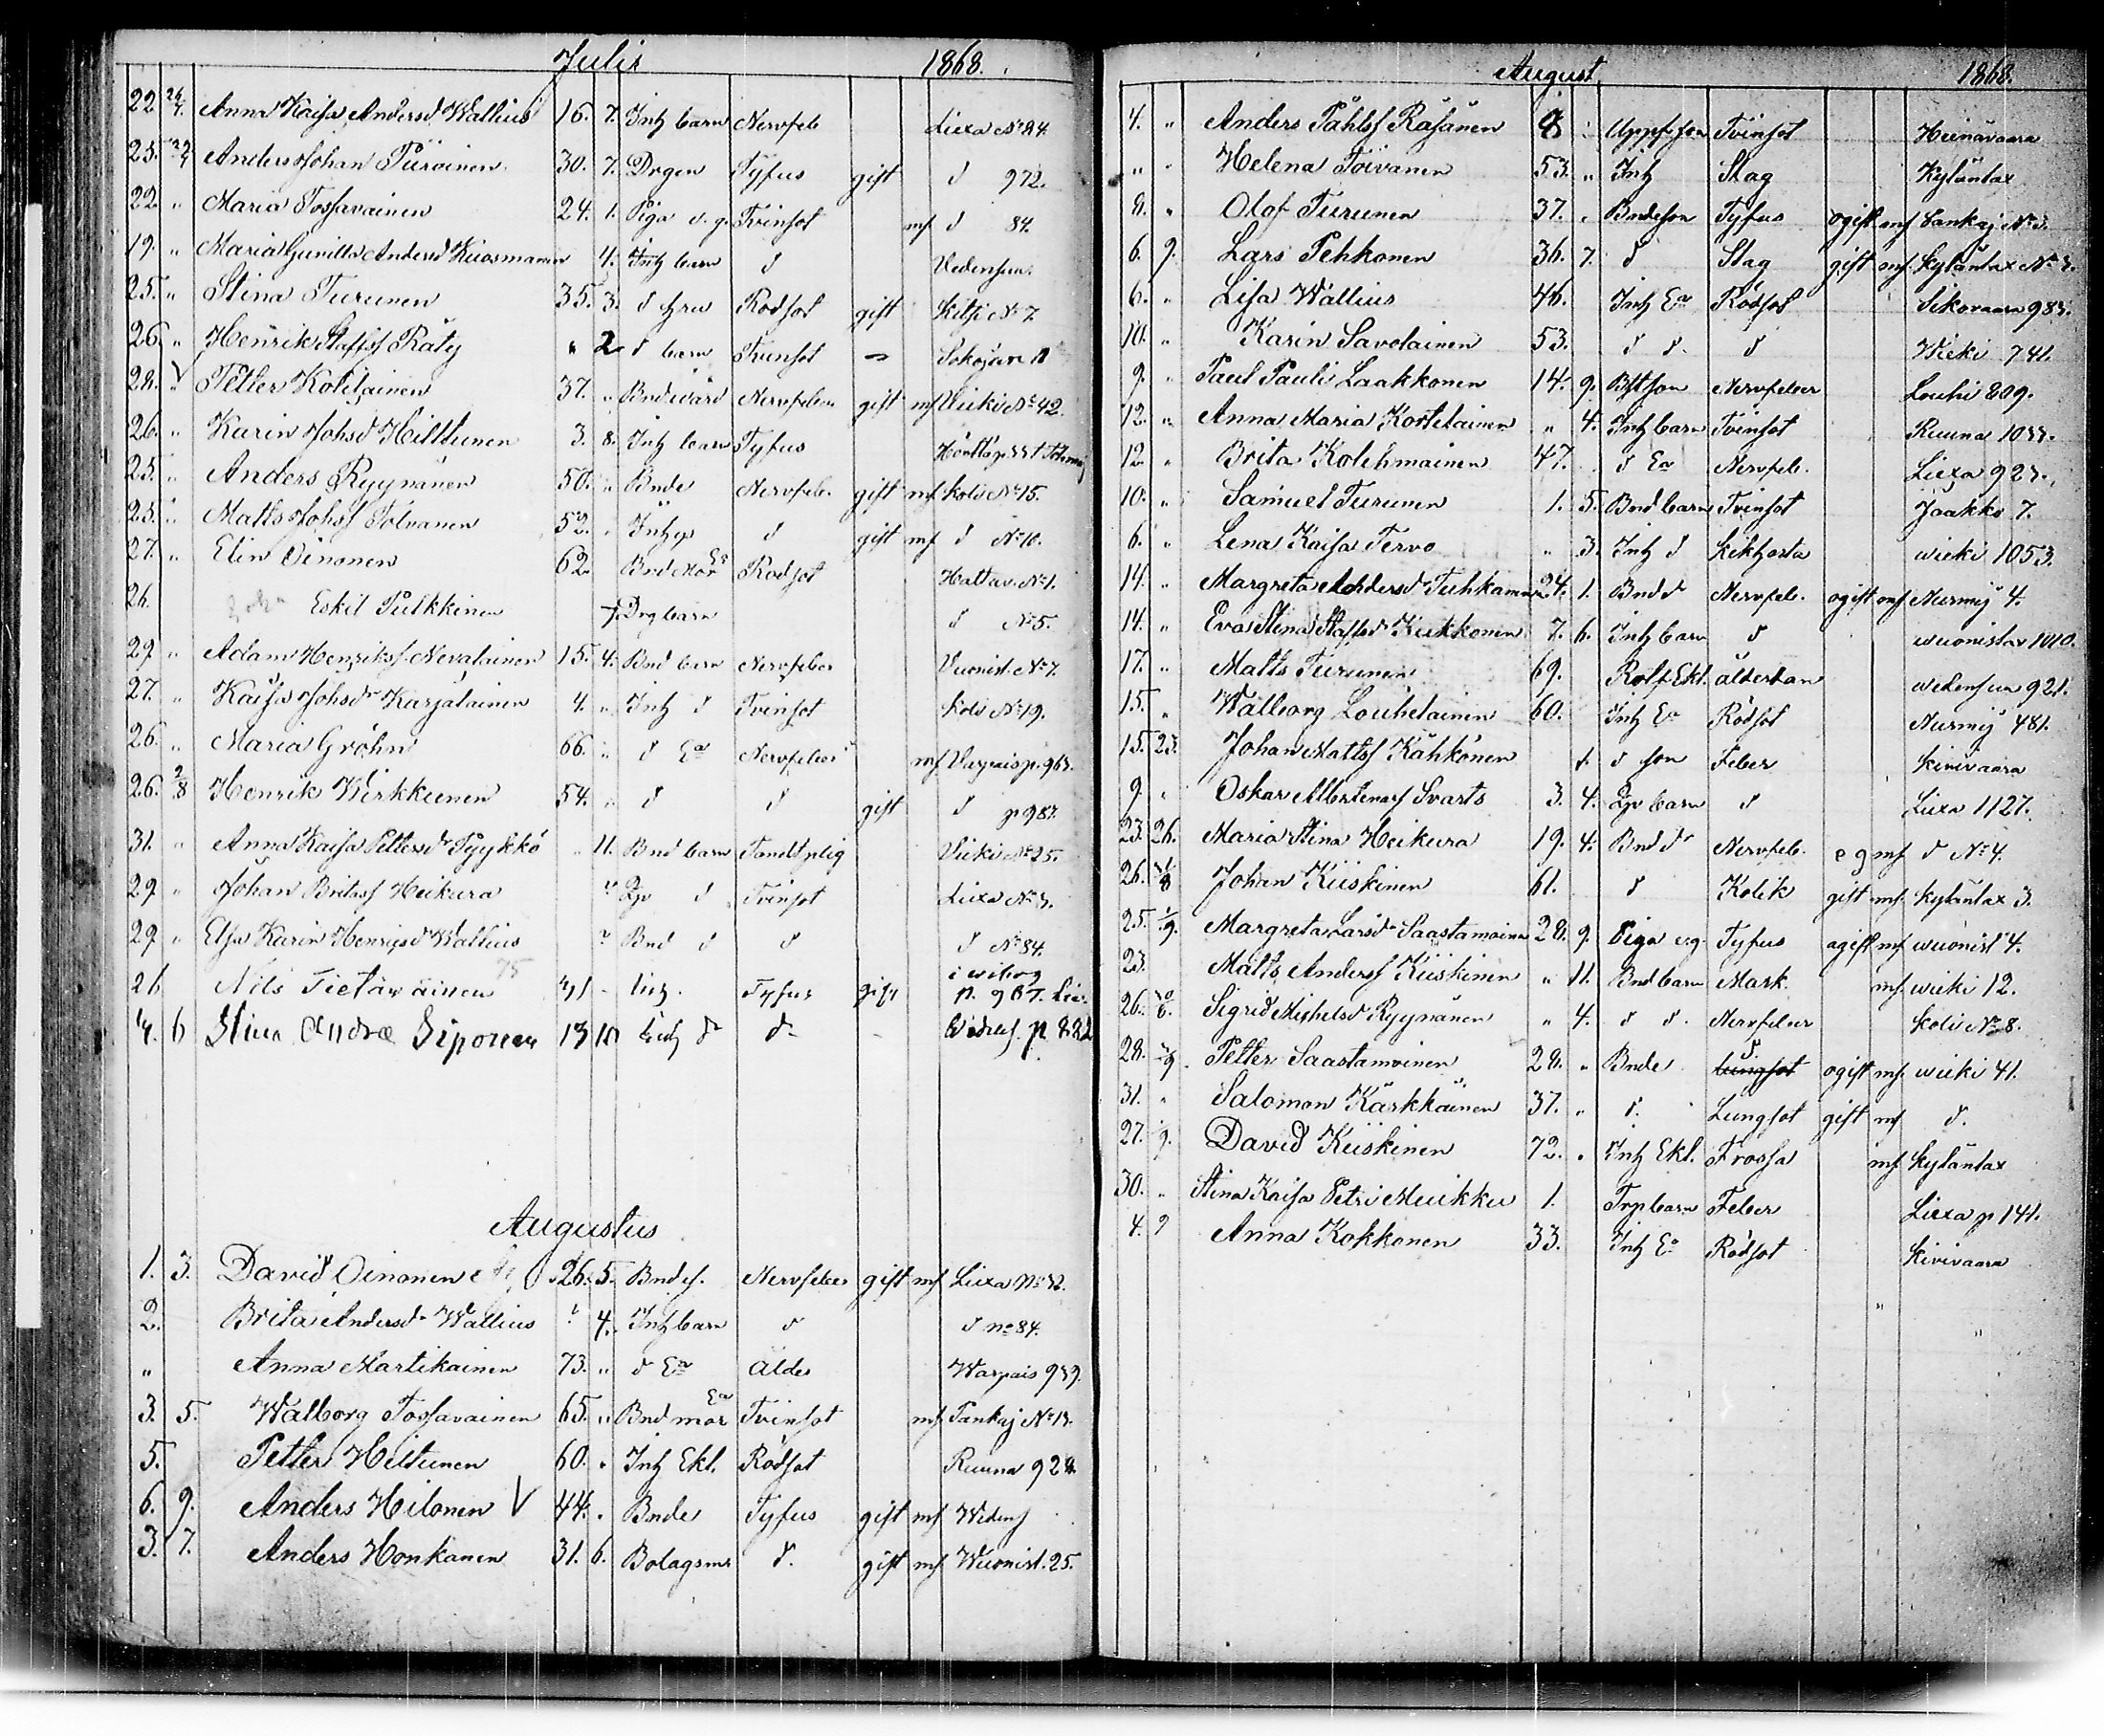 Julii 1868.
22 26/7. Anna Kaisa Andersd Wallius 16. 7. Inh barn Nervfeb Liexa No 84.
25. Anders Johan Piiroinen 30. 7. Drgen Tyfus gift d 972.
22 " Maria Tossavainen 24. 1. Piga o.g. Tvinsot mf d 84.
19. " Maria Gunilla Andersd Kuosmanen 4. Inh barn d Vedensuu.
25. " Stina Turunen 35. 3. d hru Rödsot gift Kelsi No 7.
26. " Henrik Staffsf Räty " 2 d barn Tvinsot
28. " Petter Kotilainen 37. " Bndevärd Nervfeber gift mf Vieki No 42.
26. " Karin Johsd Hilttunen 3. 8. Inh barn Tyfus
25. " Anders Ryynänen 50. " Bnde Nervfeb. gift mf Koli No 15.
25. " Matts Johsf Tolvanen 52. " Inhgs d gift mf d No 10.
27. " Elin Oinonen 62. Bnd Mor Ea Rödsot Hattuv. No 1.
26. Eskil Pulkkinen 7. Drg barn d No 5.
29 " Adam Henriksf Nevalainen 15. 4. Bnd barn Nervfeber Vuonisl. No 7.
27. " Kaisa Johsdr Karjalainen 4. " Inh d Tvinsot Koli No 19.
26. " Maria Gröhn 66. " d Ea Nervfeber mf Varpais p. 963.
26. 2/8 Henrik Wirkkunen 54. " d d gift d p 987.
31. " Anna Kaisa Pettersdr Pyykkö " 11. Bnd barn Tandtplig Vieki No 25.
29 " Johan Britasf Heikura " d Tvinsot Liexa No 3.
29 " Elsa Karin Henrigsd Wallius " Bnd d d d No 84.
21. Nils Tietäväinen 75 41 - Inh. Tyfus gift i wiborg p. 987. Liex.
4. 6 Stina Andræ Siponen 13 10 Inh dr d - p 882
Augustus
1. 3. David Oinonen 26. 5. Bndes. Nervfeber gift mf Liexa No 32.
2. Brita Andersd Wallius " 4. Inh barn d d no 84.
" Anna Martikainen 73. " d Ea älder Warpais 939.
3. 5. Walborg Tossavainen 65. " Bnd mor Ea Tvinsot mf Pankaj No 13.
5. Petter Hiltunen 60. " Inh Ekl. Rödsot Ruuna 924
6. 9. Anders Hilonen V 44. " Bnde Tyfus gift mf Wedens
3. 7. Anders Honkanen 31. 6. Bolagsmr d. gift mf Wuonisl. 25.
August 1868.
4. " Anders Påhlsf Räsänen 8 Uppfsson Tvinsot Heinävaara
" " Helena Toivanen 53. " Inh Slag Kyläntax
8. " Olof Turunen 37. " Bndeson Tyfus ogift mf Pankaj No 3.
6. 9. Lars Pehkonen 36. 7. d Slag gift mf Kyläntax No 3.
6. " Lisa Wallius 46. Inh Ea Rödsot Sikovaara 983.
10. " Karin Savolainen 53. d d. d Wieki 741.
9. " Paul Pauli Laakkonen 14. 9. Bstson Nervfeber Louhi 809.
12. " Anna Maria Kortelainen " 4. Inh barn Tvinsot Ruuna 1033.
12 " Brita Kolehmainen 47. d Ea Nervfeb. Liexa 923.
10. " Samuel Turunen 1. 5. Bnd barn Tvinsot Jaakko 7.
6. " Lena Kaisa Tervo " 3. Inh d Kikhosta wieki 1053.
14. " Margreta Andersd Tuhkanen 24. 1. Bnd d Nervfeb. ogift mf Nurmij 4.
14. " Eva Stina Staffsd Kukkonen 7. 6. Inh barn d wuonislax 1010.
17. " Matts Turunen 69. Rotf Ekl. ålderdom wedensuu 921.
15. " Walborg Louhelainen 60. Inh Ea Rödsot Nurmij 481.
15. 23. Johan Mattsf Kähkönen 1. d son Feber Kivivaara
9. " Oskar Albertinasf Svarts 3. 4. barn d Liexa 1127.
23. 26. Maria Stina Heikura 19. 4. Bnd dr Nervfeb. o g mf d No 4.
26. Johan Kiiskinen 61. d Kolik gift mf Kyläntax 3.
25. 1/9. Margreta Larsd Saastamoinen 28. 9. Piga og. Tyfus ogift mf wuonisl 4.
23. Matts Andersf Kiiskinen " 11. Bnd barn Mark. mf wieki 12.
26. Sigrid Michelsd Ryynänen " 4. d d. Nervfeber Koli No 8.
28. Petter Saastamoinen 28. " Bnde d lungsot ogift mf wieki 41.
31. " Salomon Kärkkäinen 37. " d. Lungsot gift mf d.
27. 9. David Kiiskinen 72. " Inh Ekl. Frossa mf Kyläntax
30. " Stina Kaisa Petri Muikku 1. Trp barn Feber Liexa p 141.
4. 9 Anna Kokkonen 33. Inh Ea Rödsot Kivivaara